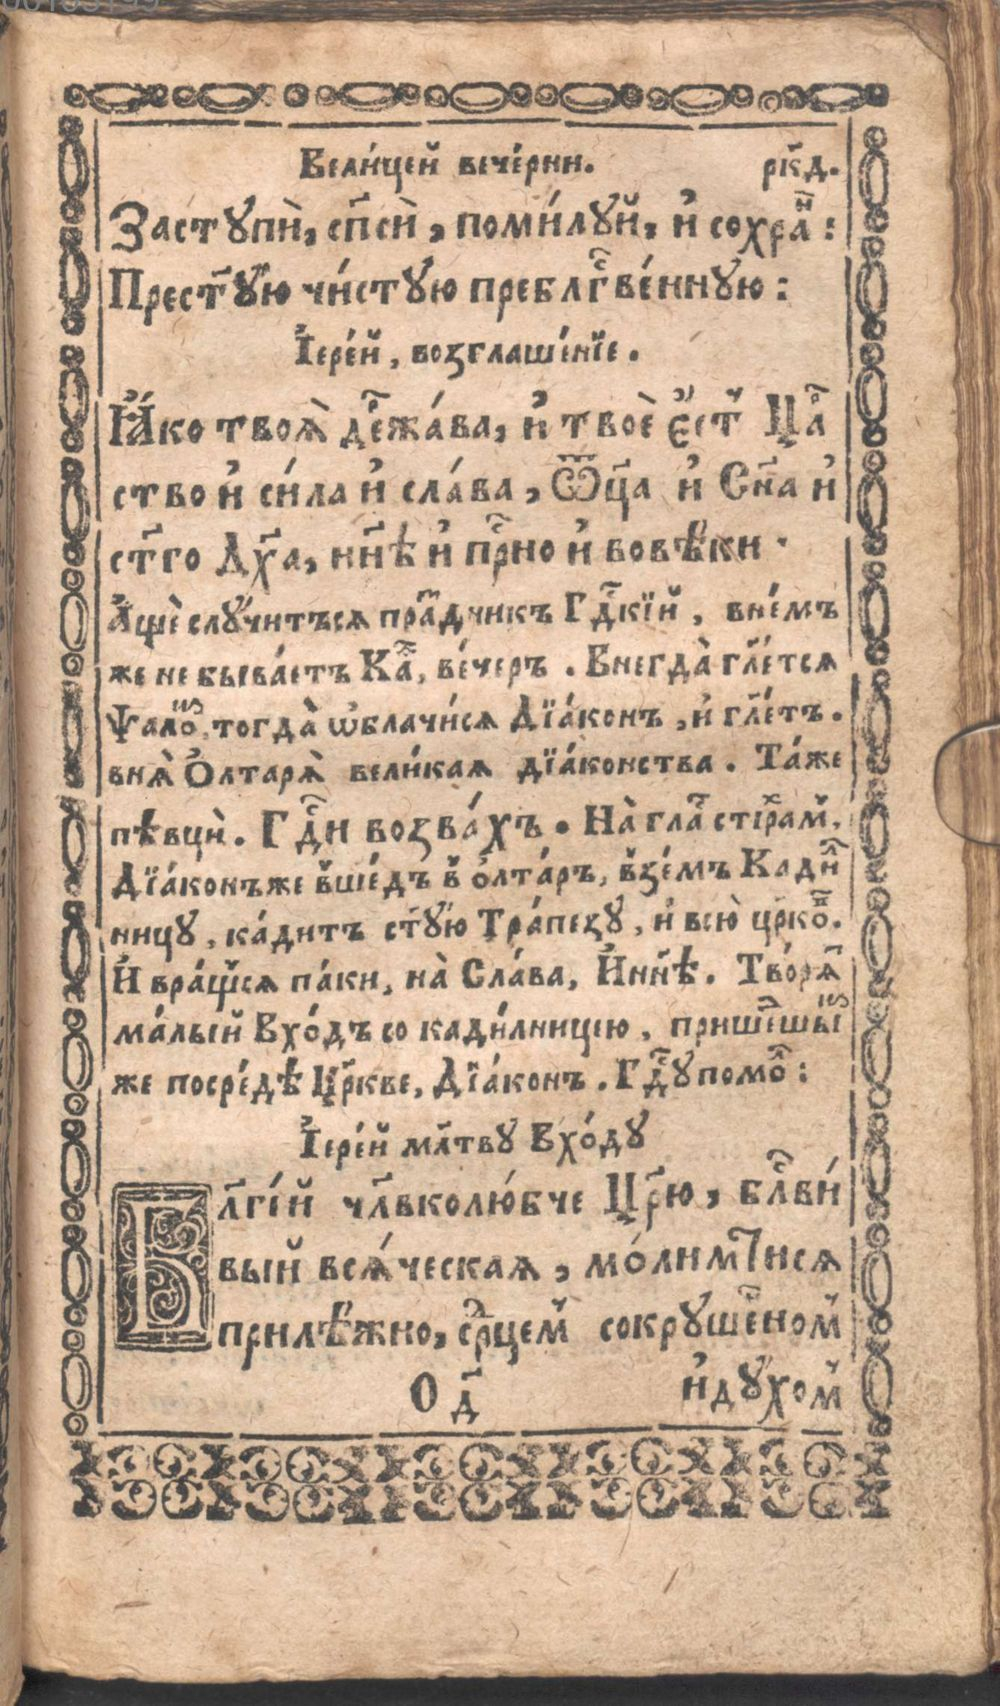 Вели́цей вече́рни. рк҃д.
Заступѝ, сп҃сѝ, поми́луй, и҆ сохраⷩ҇:
Прест҃ꙋ́ю чи́стꙋю преблгⷭ҇ве́ннꙋю:
І҆ере́й, возглаше́нїе.
Ꙗ҆́ко твоѧ̀ деⷬ҇жа́ва, и҆ твоѐ є҆́стъ Цⷭ҇а
ство и҆ си́ла и҆ сла́ва, Ѿц҃а и҆ Сн҃а и҆
ст҃го Дх҃а, нн҃ѣ и҆ прⷭ҇но и҆ вовѣ́ки ·
А҆́щѐ слꙋ́читъся праⷥ҇дникъ Гдⷭ҇кїй, вне́мъ
же не быва́етъ Каⷴ҇, ве́черъ. Внегда̀ гл҃етсѧ
Ѱалоⷨ҇, тогда̀ ѡ҆блачи́сѧ Дїа́конъ, и҆ гл҃етъ.
внѧ̀ О҆лтарѧ̀ вели́каѧ дїа́конства. Та́же
пѣвцѝ. Гдⷭ҇и возва́хъ. На̀ глаⷭ҇ стїхра́м,
Дїа́конъже в̾ше́дъ в̾ о҆лта́ръ, в̾зе́мъ Кадиⷧ҇
ницꙋ, ка́дитъ ст҃ꙋ́ю Тра́пезꙋ, и҆ всю̀ цр҃коⷡ҇.
И҆ вра́щ̾сѧ па́ки, на̀ Сла́ва, И҆нн҃ѣ. Тво́рѧⷮ
ма́лый Вхо́дъ со кади́лницею, пришеⷣшыⷨ
же посре́дѣ Цр҃кве, Дїа́конъ. Гдⷭ҇ꙋ помоⷧ҇:
І҆ере́й мл҃твꙋ Вхо́дꙋ
Бл҃гі́й чл҃вколю́бче Цр҃ю, блⷭ҇ви́
вый всѧ́ческаѧ, мо́лимтисѧ
прилѣ́жно, срⷣцем сокрꙋше́ном
О д҃ и҆дꙋ́хом